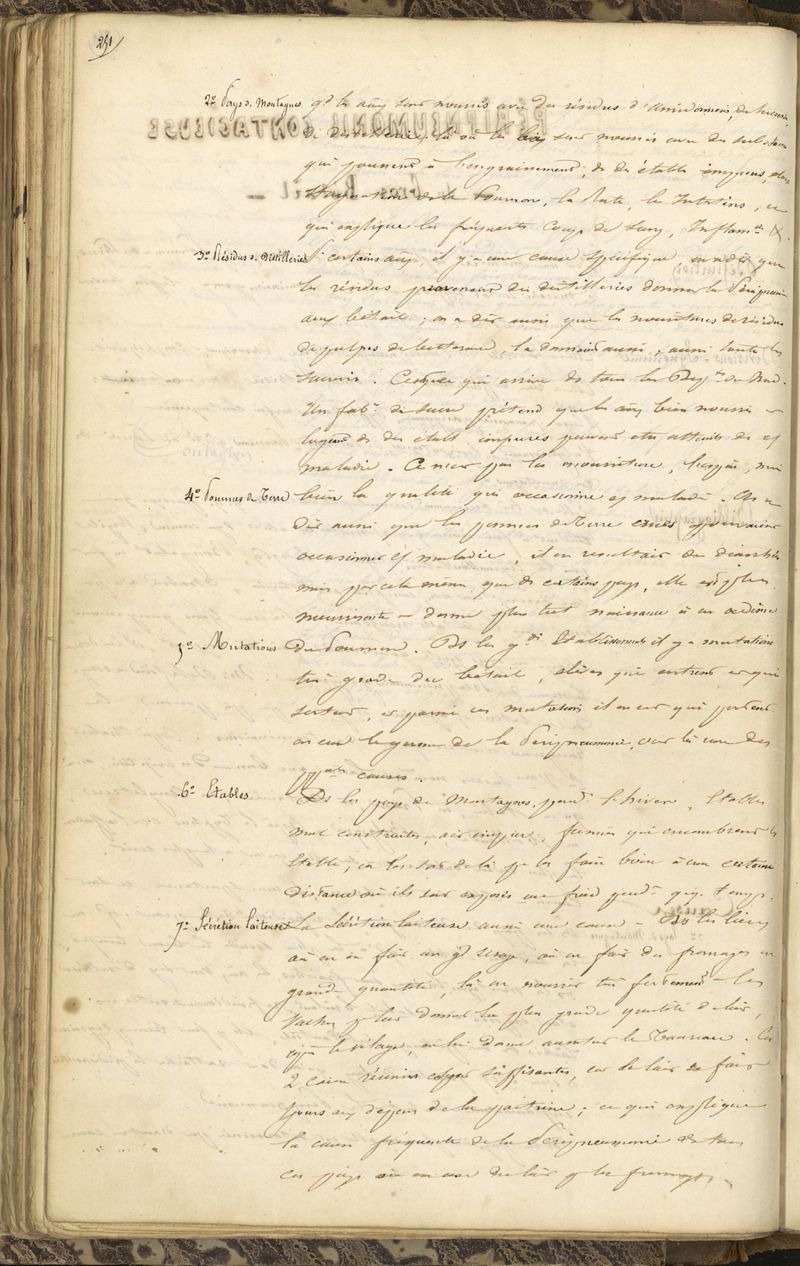 291
2º Pays de Montagnes
qd les aux sont nourris avec des résidus d'Amidonnerie, de Sucrerie,
de distillerie, là où les aux sont nourris avec des substances
qui poussent à l'engraissement, ds des étables impures,
stagnation ds le Poumon, la Rate, le Intestins, ce
qui explique les fréquents Coups de Sang, Inflamon
3º Résidus de Distilleries
Pr certains aux, il y a une cause spécifique, on a dit que
les résidus provenant des distilleries donnent la Péripneumonie
aux bétail ; on a dit aussi que les nourritures de résidus
de pulpes de betterave, la donnait aussi, aussi toute les
sucreries. C'est ce qui arrive ds tous les Départs du Nord.
Un fabt de sucre prétend que les aux bien nourris et
logeant ds des étabs impures peuvent être atteints de cette
maladie. Ce n'est pas la nourriture, l'espèce, mais
4º Pommes de Terre
bien la qualité qui occasionne cette maladie. On a
dit aussi que les pommes de Terre crues pouvaient
occasionner cette maladie, il en resultait des diarrhées
mais par cela même que ds certains pays, elle est plus
nourrissante et donne plus tôt naissance à un oedème
5º Mutations
du Poumon. Ds les gds Etablissements il y a mutations
très grande du bétail, élèves qui entrent et qui
sortent, et parmi ces mutations il en est qui portent
en eux le germe de la Péripneumonie, voir là une des
ppales causes.
6º Etables
Ds les pays de Montagnes, pendt l'hiver, Etables
mal construites, air impur, fumier qui encombrent les
Etable ; on les sort de là pr les faire boire à une certaine
distance où ils sont exposés au froid pendt qq. temps.
7º Sécrétion laiteuse
La Sécrétion laiteuse aussi une cause — Ds les lieux
où on en fait un gd usage, où on fait des fromages en
grande quantité, là on nourrit très fortement les
Vaches pr leur donner la plus grande quantité de lait,
le Taureau. Ces
2 causes réunies suffisantes, car le lait se fait
tjours aux dépens de la poitrine ; ce qui explique
la cause fréquente de la Péripneumonie ds tous
ces pays où on use du lait pr les fromages.